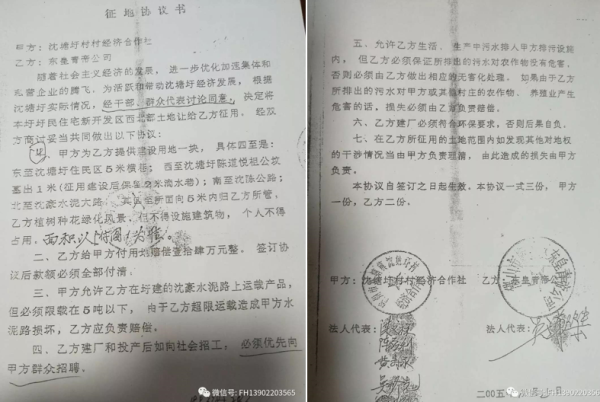 征地协议书
甲方：沈塘圩村村经济合作社
乙方：东星青帝公司
随着社会主义经济的发展，进一步优化加速集体和
私营企业的腾飞，为活跃和带动沈塘圩经济发展，根据
沈塘圩实际情况，经干部、群众代表讨论同意，决定将
本圩圩民住宅新开发区西北部土地让给乙方征用。经双
方商讨妥当共同做出以下协议：
一、甲方为乙方提供建设用地一块，具体四至是：
东至沈塘圩住民区5米横巷；西至沈塘圩陈道悦祖公坟
墓出1米（征用建设后保留2米滴水巷）；南至沈陈公路；
北至沈豪水泥大路，其四至所面向5米内归乙方所管，
乙方植树种花绿化风景，但不得设施建筑物，个人不得
占用。面积以附图为准。
二、乙方给甲方付用地赔偿壹拾肆万元整，签订协
议后款额必须全部付清。
三、甲方允许乙方在圩建的沈豪水泥路上运载产品，
但必须限载在5吨以下，由于乙方超限运载造成甲方水
泥路损坏，乙方应负责赔偿。
四、乙方建厂和投产后如向社会招工，必须优先向
甲方群众招聘。
微信号: FH13902203565
五、允许乙方生活、生产中污水排入甲方排污设施
内，但乙方必须保证所排出的污水对农作物没有危害，
否则必须由乙方做出相应的无害化处理，如果由于乙方
所排出的污水对甲方或其他村庄的农作物、养殖业产生
危害的话，损失必须由乙方负责赔偿。
六、乙方建厂必须符合环保要求，否则后果自负。
七、在乙方所征用的土地范围内如发现其他对地权
的干涉情况当由甲方负责理清，由此造成的损失由甲方
负责。
本协议自签订之日起生效，本协议一式三份，甲方
一份，乙方二份。
甲方：沈塘圩村村经济合作社 乙方：东星青帝
法人代表： 法人代表：
二00五